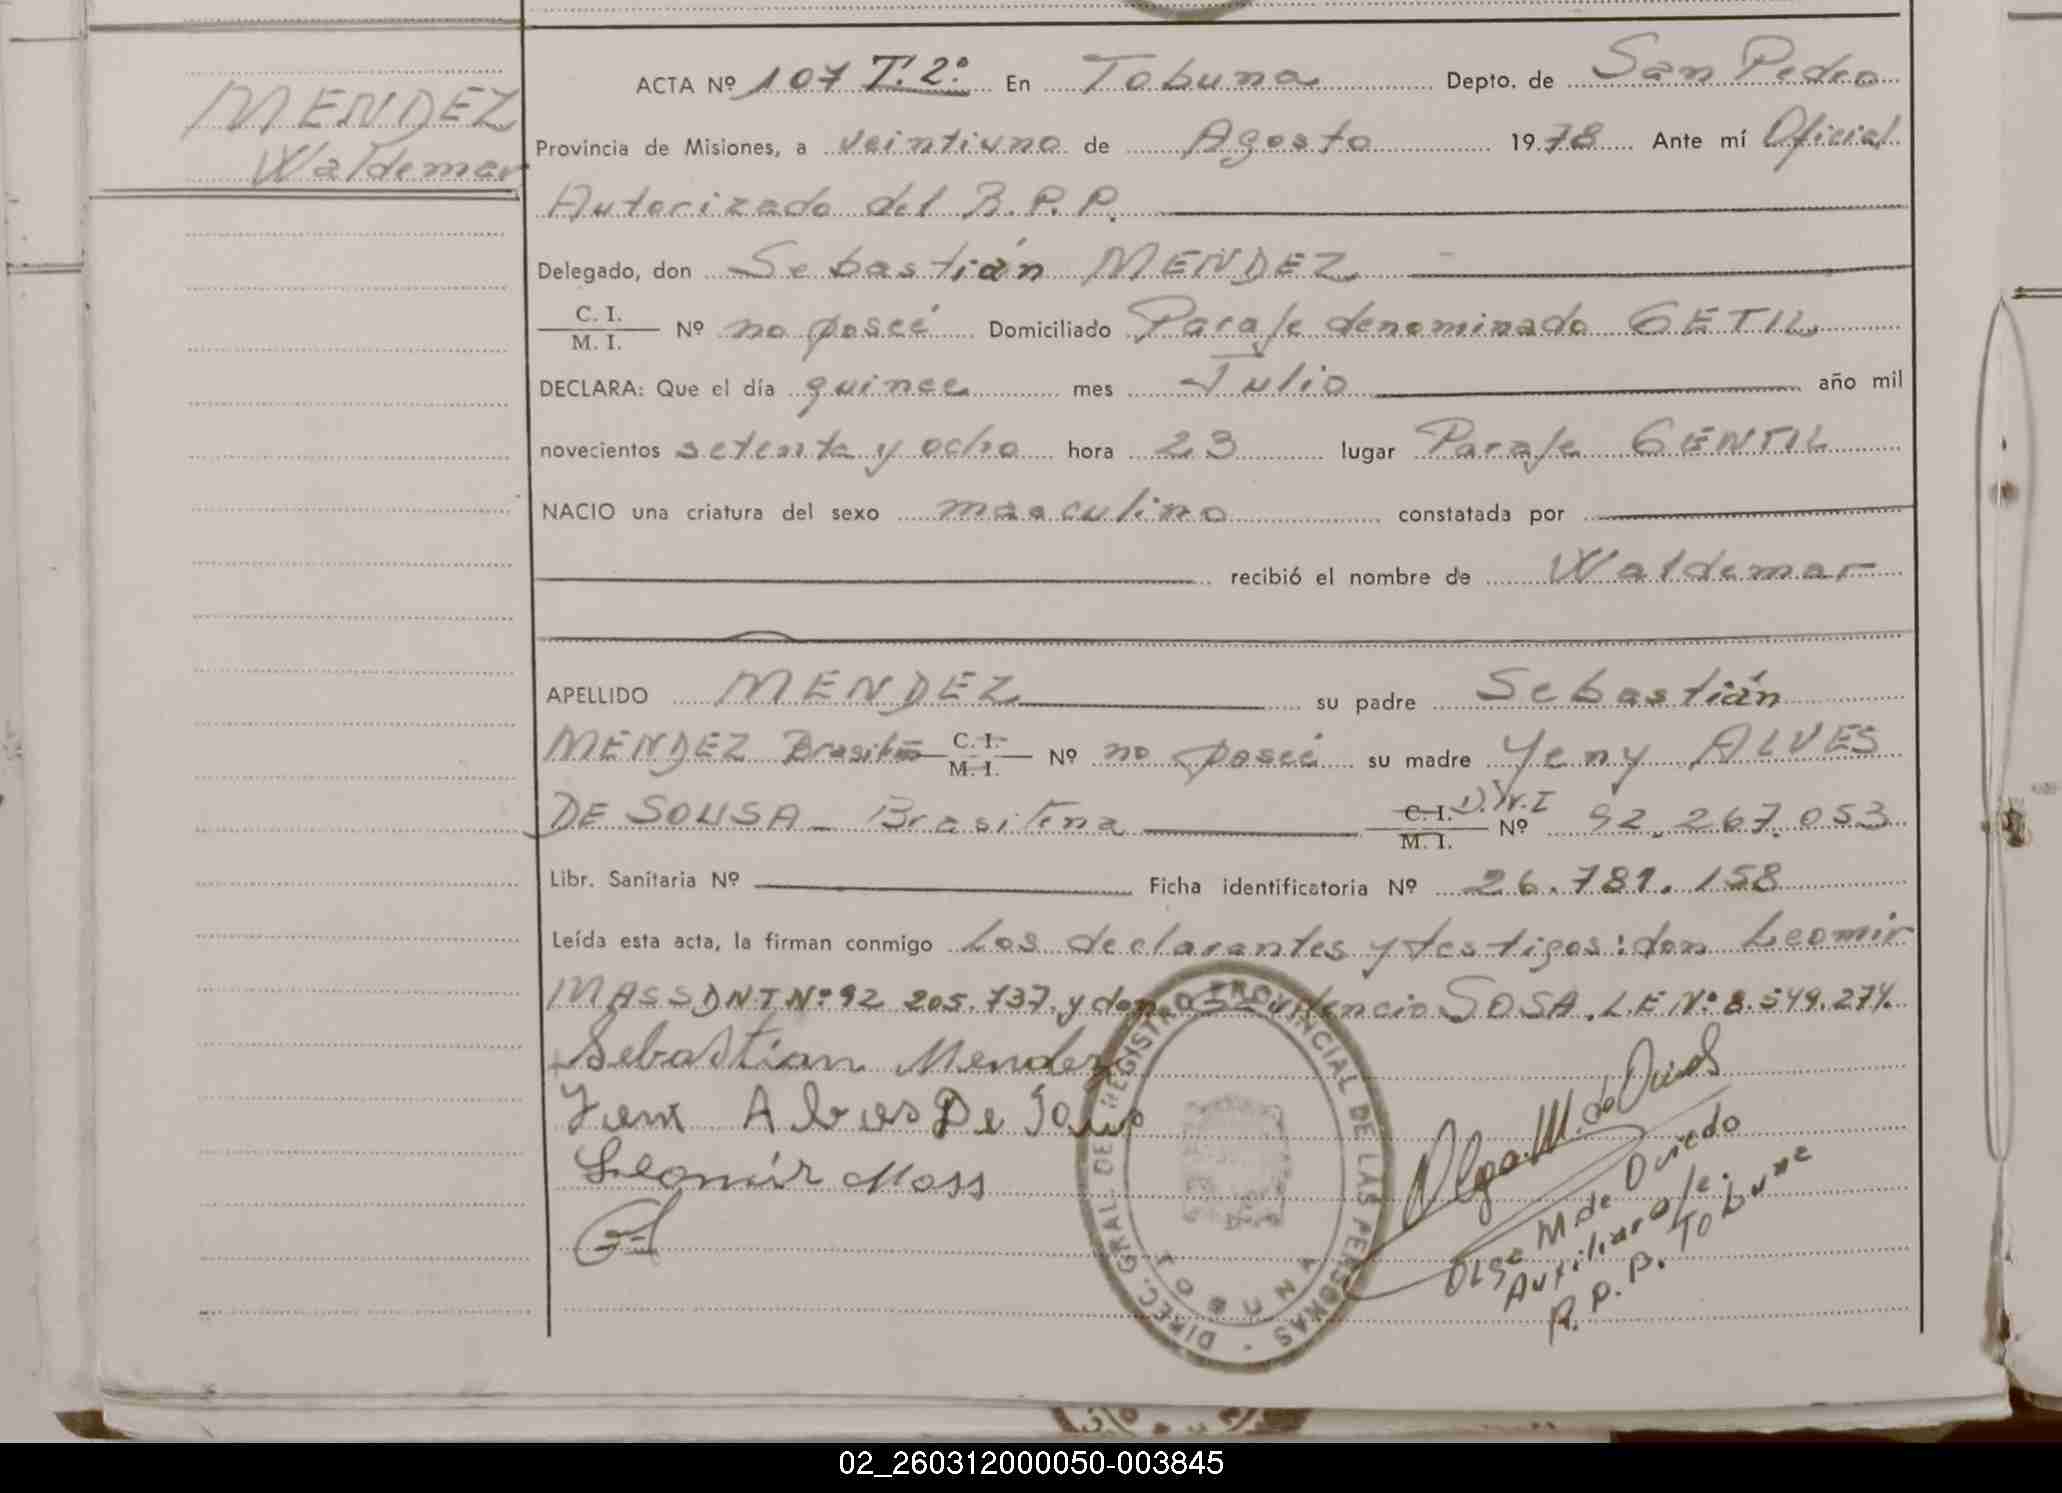 MENDEZ
Waldemar
ACTA Nº 107 T. 2º. En Tobuna Depto. de San Pedro
Provincia de Misiones, a veintiuno de Agosto 1978 Ante mí Oficial
Autorizado del R.P.P.
Delegado, don Sebastián MENDEZ
C. I.
M. I. Nº no poseé Domiciliado Paraje denominado GETIL
DECLARA: Que el día quince mes Julio año mil
novecientos setenta y ocho hora 23 lugar Paraje GENTIL
NACIO una criatura del sexo masculino constatada por
recibió el nombre de Waldemar
APELLIDO MENDEZ su padre Sebastián
MENDEZ C. I. M. I. Nº no poseé su madre Yeny ALVES
DE SOUSA - C. I. M. I. Nº 92.267.053
Libr. Sanitaria Nº Ficha identificatoria Nº 26.781.158
Leída esta acta, la firman conmigo Los declarantes y testigos: don Leomir
MASS DNI Nº 92 205.737. y don SOSA. L.E Nº 8.549.274.
Sebastian Mendez
Alves De
Leomir Mass
Olga M. de Oviedo
Olga M de Oviedo
Auxiliar
R.P.P. Tobuna
DIREC. GRAL DE REGISTRO PROVINCIAL DE LAS PERSONAS
TOBUNA
02_260312000050-003845